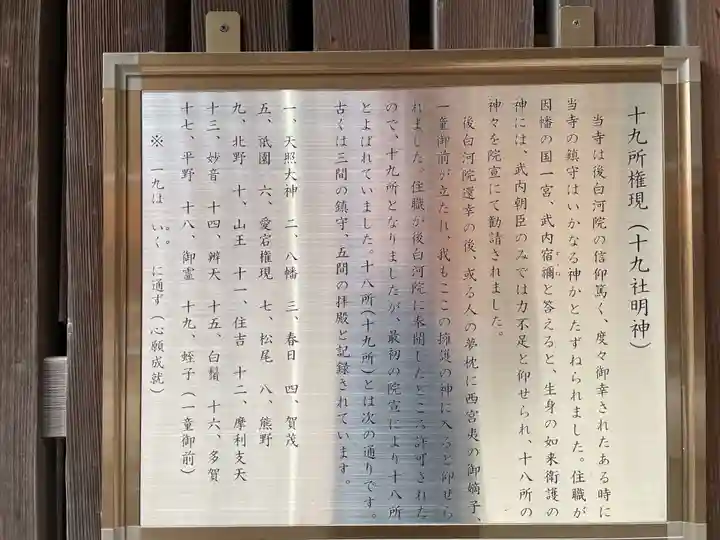 十九所権現(十九社明神)
当寺は後白河院の信仰篤く、度々御幸されたある時に
当寺の鎮守はいかなる神かとたずねられました。住職が
因幡の国一宮、武内宿禰と答えると、生身の如来衛護の
神には、武内朝臣のみでは力不足と仰せられ、十八所の
神々を院宣にて勧請されました。
後白河院還幸の後、或る人の夢枕に西宮夷の御嫡子、
一童御前が立たれ、我もここの擁護の神に入ると仰せら
れました。住職が後白河院に奏聞したところ許可された
ので、十九所となりましたが、最初の院宣により十八所
とよばれていました。十八所(十九所)とは次の通りです。
古くは三間の鎮守、五間の拝殿と記録されています。
一、天照大神 二、八幡 三、春日 四、賀茂
五、祇園 六、愛宕権現 七、松尾 八、熊野
九、北野 十、山王 十一、住吉 十二、摩利支天
十三、妙音 十四、辨天 十五、白鬚 十六、多賀
十七、平野 十八、御霊 十九、蛭子(一童御前)
※ 一九は いく に通ず(心願成就)